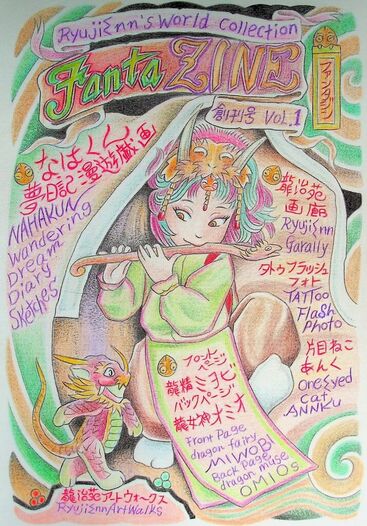 RyujiΣnn's World Collection
Fanta ZINE
ファンタジン
創刊号 Vol.1
なはくん
夢日記・漫遊戯画
NAHAKUN
Wandering
Dream
Diary
Sketches
龍治苑
画廊
RyujiΣnn
Garally
タトゥフラッシュ
フォト
TATToo
Flash
Photo
片目ねこ
あんく
OneΣyed
cat
ANNKU
フロントページ
龍精ミヨビ
バックページ
龍女神オミオ
Front Page
dragon fairy
MIWOBI
Back Page
dragon muse
OMIOs
龍治苑アートウォークス
RyujiΣnnArtWalks